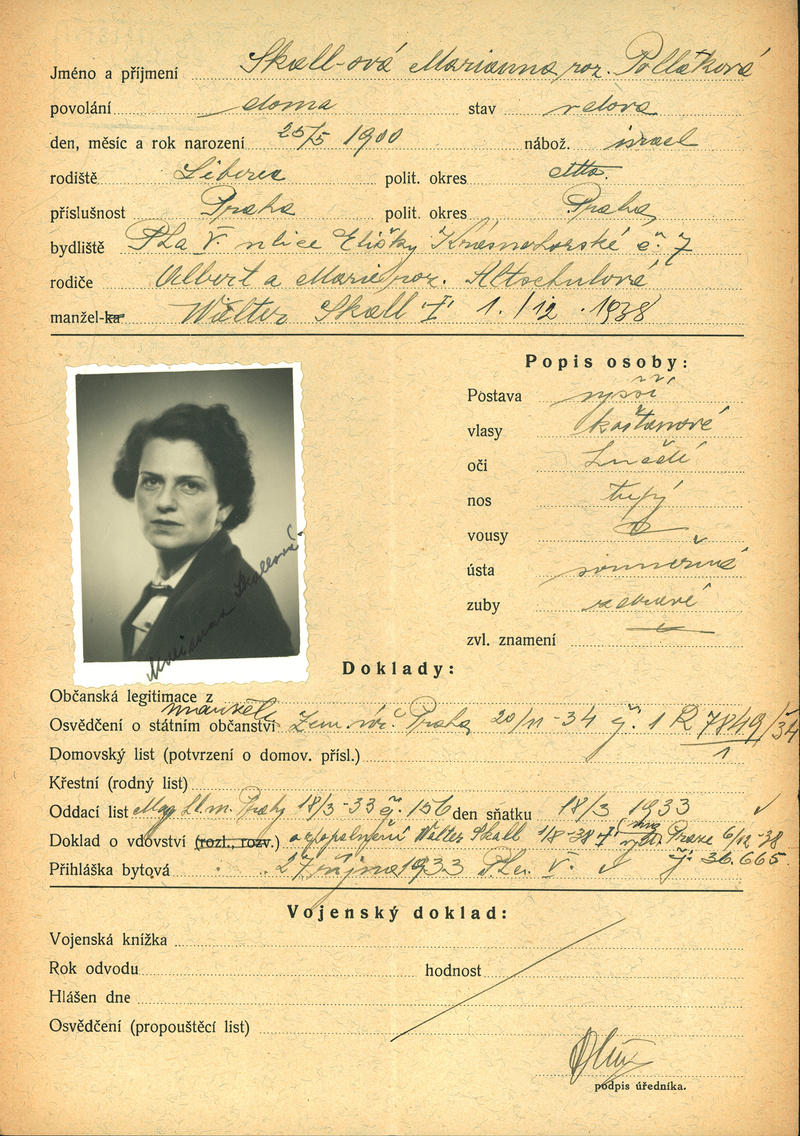 Jméno a příjmení Skall-ová Marianna roz. Pollaková
povolání doma stav vdova
den, měsíc a rok narození 25/5 1900 nábož. israel
rodiště Liberec polit. okres dtto.
příslušnost Praha polit. okres Praha
bydliště Pha V. ulice Elišky Krásnohorské č. 7
rodiče Albert a Marie roz. Altschulová
manžel-ka Walter Skall † 1./12. 1938
Popis osoby:
Postava vyšší
vlasy kaštanové
oči hnědé
nos tupý
vousy
ústa souměrná
zuby zdravé
zvl. znamení
Marianna Skallová
Doklady:
Občanská legitimace z
manžel
Osvědčení o státním občanství Zem. úř. Praha 20/11-34 č. 1 R 7849/34
1
Domovský list (potvrzení o domov. přísl.)
Křestní (rodný list)
Oddací list Mag. hl. m. Prahy 18/3-33 č. 156 den sňatku 18/3 1933
Doklad o vdovství (rozl., rozv.) o zpopelnění Walter Skall Praze 6/12-38
č. 36.665
Přihláška bytová 27 října 1933 Pha V.
Vojenský doklad:
Vojenská knížka
Rok odvodu hodnost
Hlášen dne
Osvědčení (propouštěcí list)
podpis úředníka.